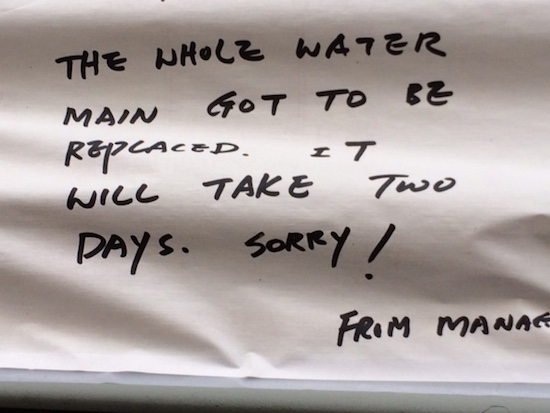 THE WHOLE WATER
MAIN GOT TO BE
REPLACED. IT
WILL TAKE TWO
DAYS. SORRY!
FROM MANAGE